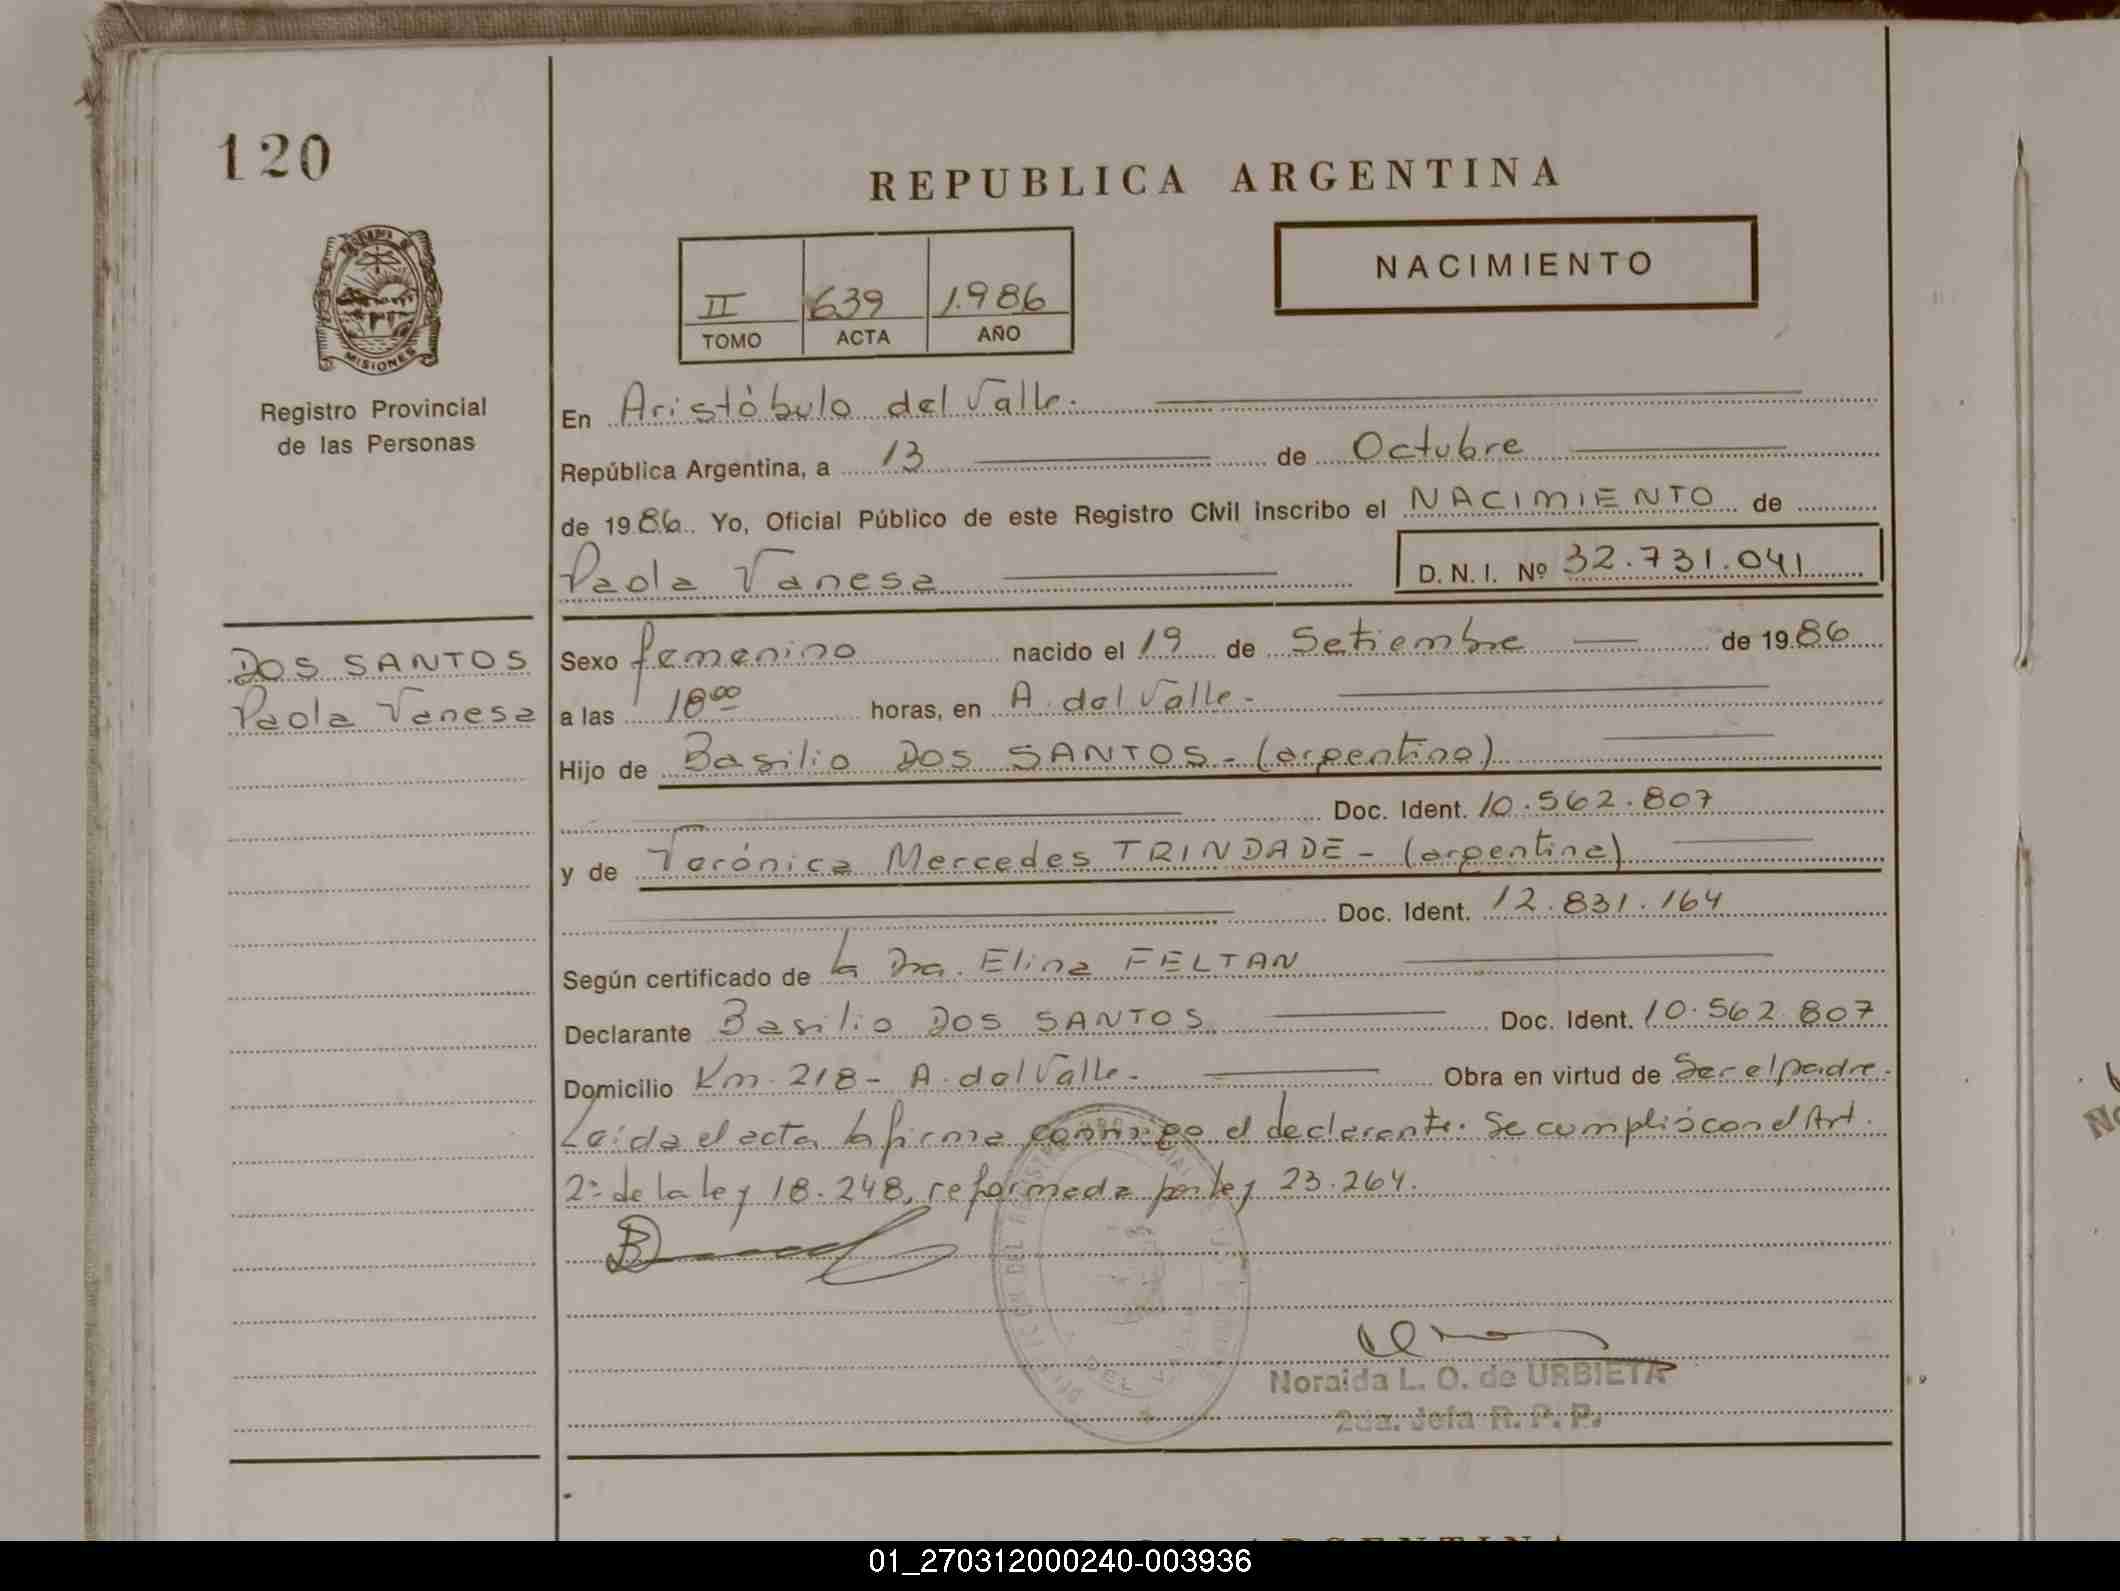 120
REPUBLICA ARGENTINA
NACIMIENTO
II 639 1.986
TOMO ACTA AÑO
MISIONES
Registro Provincial
de las Personas
En Aristóbulo del Valle.
República Argentina, a 13 de Octubre
de 1986. Yo, Oficial Público de este Registro Civil inscribo el NACIMIENTO de
Paola Vanesa D. N. I. Nº 32.731.041
DOS SANTOS
Paola Vanesa
Sexo femenino nacido el 19 de Setiembre de 1986
a las 18 00 horas, en A. del Valle -
Hijo de Basilio DOS SANTOS - (argentino)
Doc. Ident. 10.562.807
y de Verónica Mercedes TRINDADE - (argentina)
Doc. Ident. 12.831.164
Según certificado de la Dra. Elina FELTAN
Declarante Basilio DOS SANTOS Doc. Ident. 10.562.807
Domicilio Km. 218 - A. del Valle - Obra en virtud de Ser el padre.
Leída el acta la firma conmigo el declarante. Se cumplió con el Art.
2º de la ley 18.248, reformada por ley 23.264.
Noraida L. O. de URBIETA
2da. Jefa R. P. P.
01_270312000240-003936